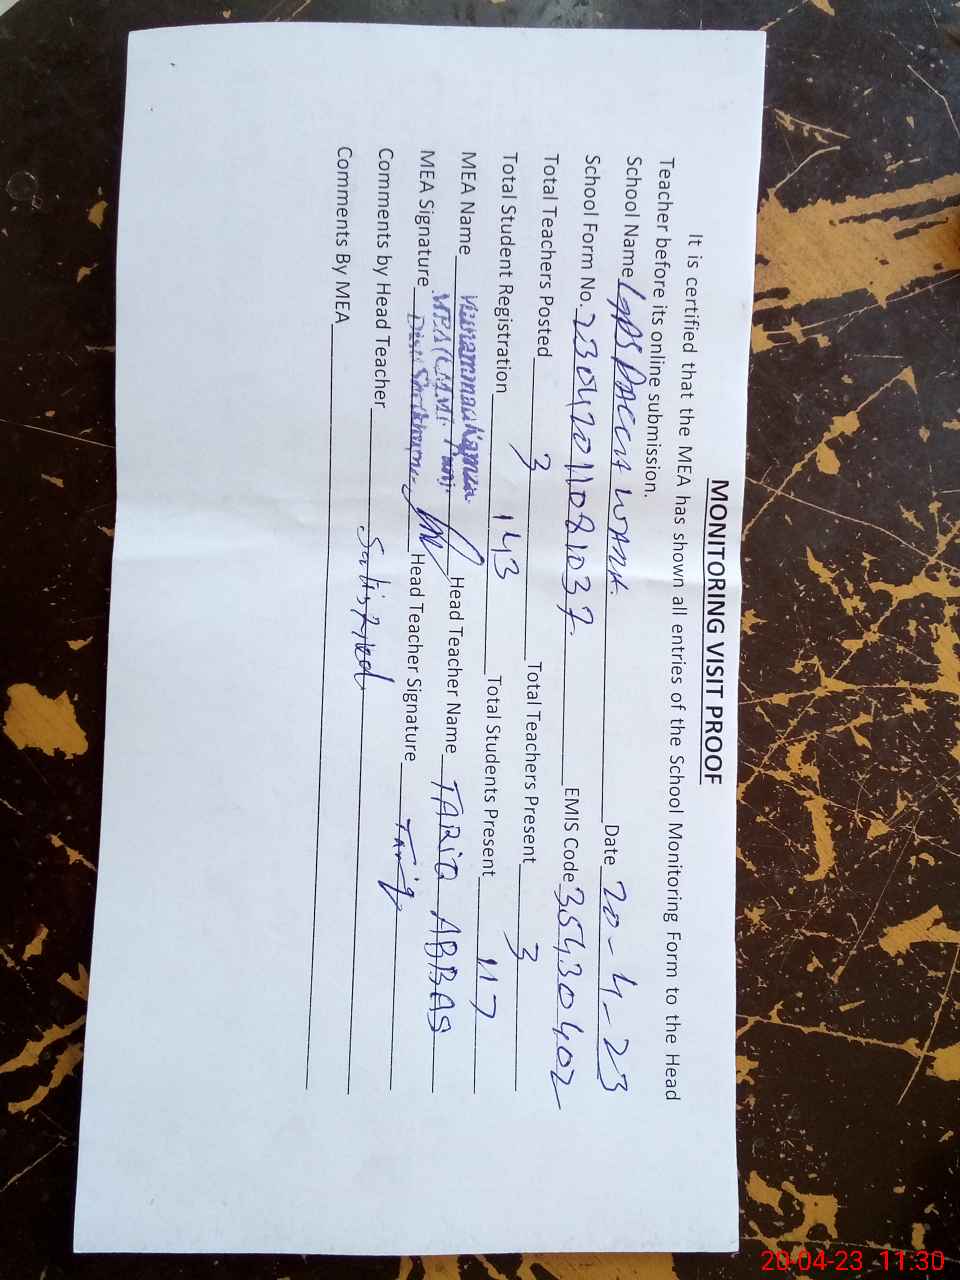 MONITORING VISIT PROOF
It is certified that the MEA has shown all entries of the School Monitoring Form to the Head
Teacher before its online submission.
School Name GPS Date 20-4-23
School Form No. 23042011081037 EMIS Code 35430402
Total Teachers Posted 3 Total Teachers Present 3
Total Student Registration 143 Total Students Present 117
MEA Name Muhammad Head Teacher Name TARIQ ABBAS
MEA Signature Head Teacher Signature Tariq
Comments by Head Teacher Satisfied
Comments By MEA
20-04-23 11:30